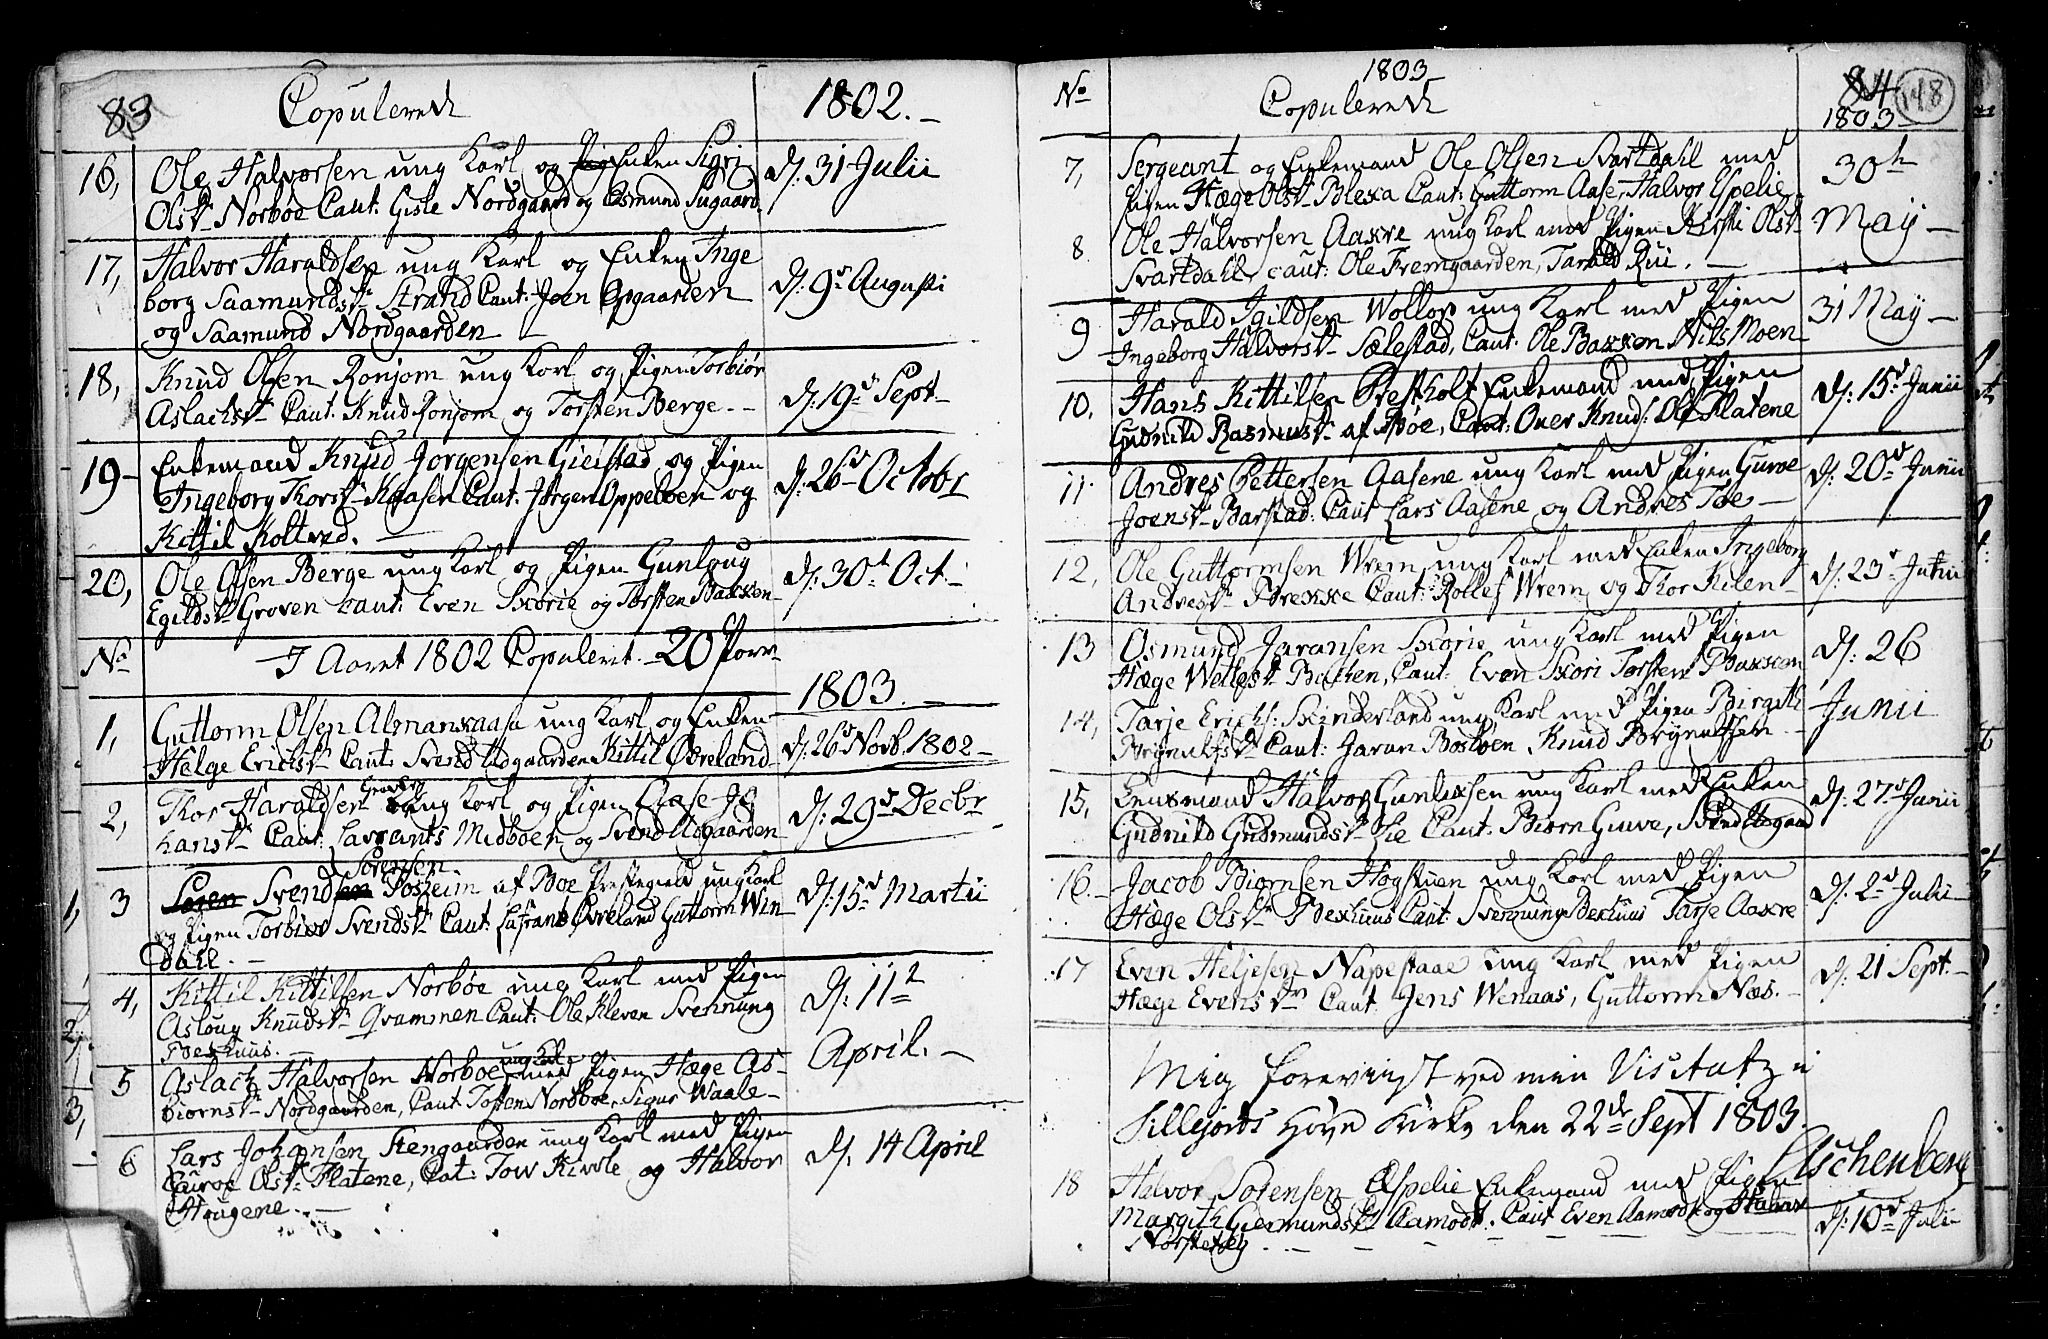 83
Copulerede
1802.
16, Ole Halvorsen ung Karl og Enken Sigri d: 31 Julii
Olsdr Norbøe Caut: Gisle Nordgaard og Osmund
17, Halvor Haraldsen ung Karl og Enken Inge
borg Saamundsdr Strand Caut: Joen Opgaarden d: 9de Augusti
og Saamund Nordgaarden
18, Knud Olsen Ronjom ung Karl og Pigen Torbiør
Aslachsdr Caut: Knud Ronjom og Torsten Berge. d: 19de Sept
19 Enkemand Knud Jorgensen Gieistad og Pigen
Ingeborg Thorsdr Kaasen Caut: Jørgen Oppeboen og d: 26de Octobr
Kittil Koltved.
20, Ole Olsen Berge ung Karl og Pigen Gunloug
Egildsdr Groven Caut: Even Skorie og Torsten Bakken d: 30de Oct.
No I Aaret 1802 Copuleret 20 Parr
1803.
1, Guttorm Olsen Almankaasa ung Karl og Enken
Helge Erichsdr Caut: Svend Utgaarden Kittil Øverland d: 26de Novb. 1802
2, Thor Haraldsen Graver ung Karl og Pigen Aase Jo
hansdr Caut: Lavrants Midbøen og Svend Utgaarden d: 29de Decbr
Sørensen
3 Soren Svendsen Foseim af Bøe Prestegield ung Karl
og Pigen Torbiør Svendsdr Caut: Lafrants Øverland Guttorm Win d: 15de Martii
dahl.
4, Kittil Kittilsen Norbøe ung Karl med Pigen
Asloug Knudsdr Qvammen Caut: Ole Kleven Svennung d: 11te
Bekhuus. April.
5 Aslach Halvorsen Norbøe ung Karl med Pigen Hæge As
biørnsdr Nordgaarden, Caut Tosten Norbøe, Sigur Waale
6 Lars Johansen Stengaarden ung Karl med Pigen
Guroe Olsdr Flatene, Caut: Tow Kivle og Halvor d: 14 April
Haugene

No 1803
Copulerede
84
148
1803
7, Sergeant og Enkemand Ole Olsen Svartdahl med 30te
Pigen Hæge Olsdr Blexa Caut: Guttorm Aase, Halvor Espelie
8 Ole Halvorsen Aakre ung Karl med Pigen Kirsti Olsdr Maij
Svartdahl, Caut: Ole Fremgaarden, Tarald Rui.
9 Harald Igildsen Wollop ung Karl med Pigen 31 Maij
Ingeborg Halvorsdr Sælestad, Caut: Ole Bakken Nils Moen
10, Hans Kittilsen Prestholt Enkemand med Pigen d: 15de Junii
Gudnild Rasmusdr af Bøe, Caut: Over Knuds: Ole Flatene
11 Andres Pettersen Aasene ung Karl med Pigen Guroe d: 20de Junii
Joensdr Barstad Caut Lars Aasene og Andres Toe
12, Ole Guttormsen Wrem ung Karl med Enken Ingeborg
Andresdr Brekke Caut: Rollef Wrem og Thor Kilen d: 23de Junii
13 Osmund Jaransen Skorie ung Karl med Pigen d: 26
Hæge Wetlesdr Bakken, Caut: Even Skori Torsten Bakken
14, Tarje Erichs: Skinderland ung Karl med Pigen Birgith Junii
Brynulfsdr Caut: Jaran Bosbøen Knud Brynulfsen
15, Lensmand Halvor Gunleksen ung Karl med Enken d: 27de Junii
Gudnild Gudmundsdr Lie Caut: Biørn Guve, Svend Utegaard
16. Jacob Biørnsen Høgstuen ung Karl med Pigen d: 2de Julii
Hæge Olsdr Bekhuus Caut: Svennung Bekhuus Tarje Aakre
17 Even Heljesen Napestaae ung Karl med Pigen d: 21 Sept.
Hæge Evensdr Caut Jens Wenaas, Guttorm Næs.
Mig foreviist ved min Visitatz i
Sillejords Hoved Kirke den 22de Sept 1803.
Aschenberg
18 Halvor Sørensen Espelie Enkemand med Pigen
Margith Giermundsdr Aamodt. Caut Even Aamodt og Halvor d: 10de Julii